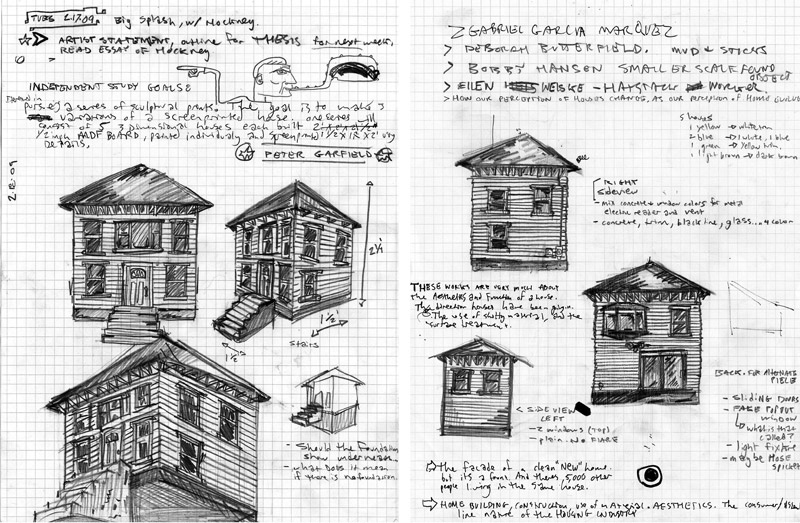 TUES 2.17.09 Big Splash, w/ Hockney.
ARTIST STATEMENT, outline for THESIS for next week,
READ ESSAY OF Hockney
INDEPENDENT STUDY GOALS:
a series of sculptural prints. The goal is to make 3
variations of a screenprinted house. one series will
consist of 5 3 dimensional houses each built
1/2 inch MDF BOARD, painted individualy and screenprinted 1 1/2' x 1 1/2' x 2'
Details,
PETER GARFIELD
2.18.09
2 1/2'
1 1/2'
1 1/2'
stairs
- Should the foundation
show underneath.
- what does it mean
if there is no foundation.
GABRIEL GARCIA MARQUEZ
> DEBORAH BUTTERFIELD. MUD & STICKS
> BOBBY HANSEN SMALLER SCALE FOUND OBJECT
> EILEN - HAYSTACK
> HOW OUR PERCEPTION OF HOUSES CHANGE, AS OUR PERCEPTION OF HOME
5 houses
1 yellow → white trim
2 blue → 1 white, 1 blue
1 green → yellow trim,
1 light brown → dark brown
RIGHT
sideview
- mix concrete & window colors for metal
electric reader and vent
- concrete, trim, black line, glass... 4 color
THESE WORKS ARE VERY MUCH ABOUT
the Aesthetics and Function of a house.
The direction houses have been
The use of shitty material, and the
"surface treatment".
< SIDE VIEW
LEFT
- 2 windows (top)
- plain. NO FLARE
BACK. FOR ALTERNATE
- SLIDING DOORS
- FAKE POP OUT
window
↳ what is that
called?
- light fixture
- maybe HOSE
the facade of a clean "NEW" home.
but its a farse. And theres 5,000 other
people living in the same house.
⇨ HOME BUILDING, CONSTRUCTION, use of material. AESTHETICS. The consumer/
line nature of the HOUSING INDUSTRY